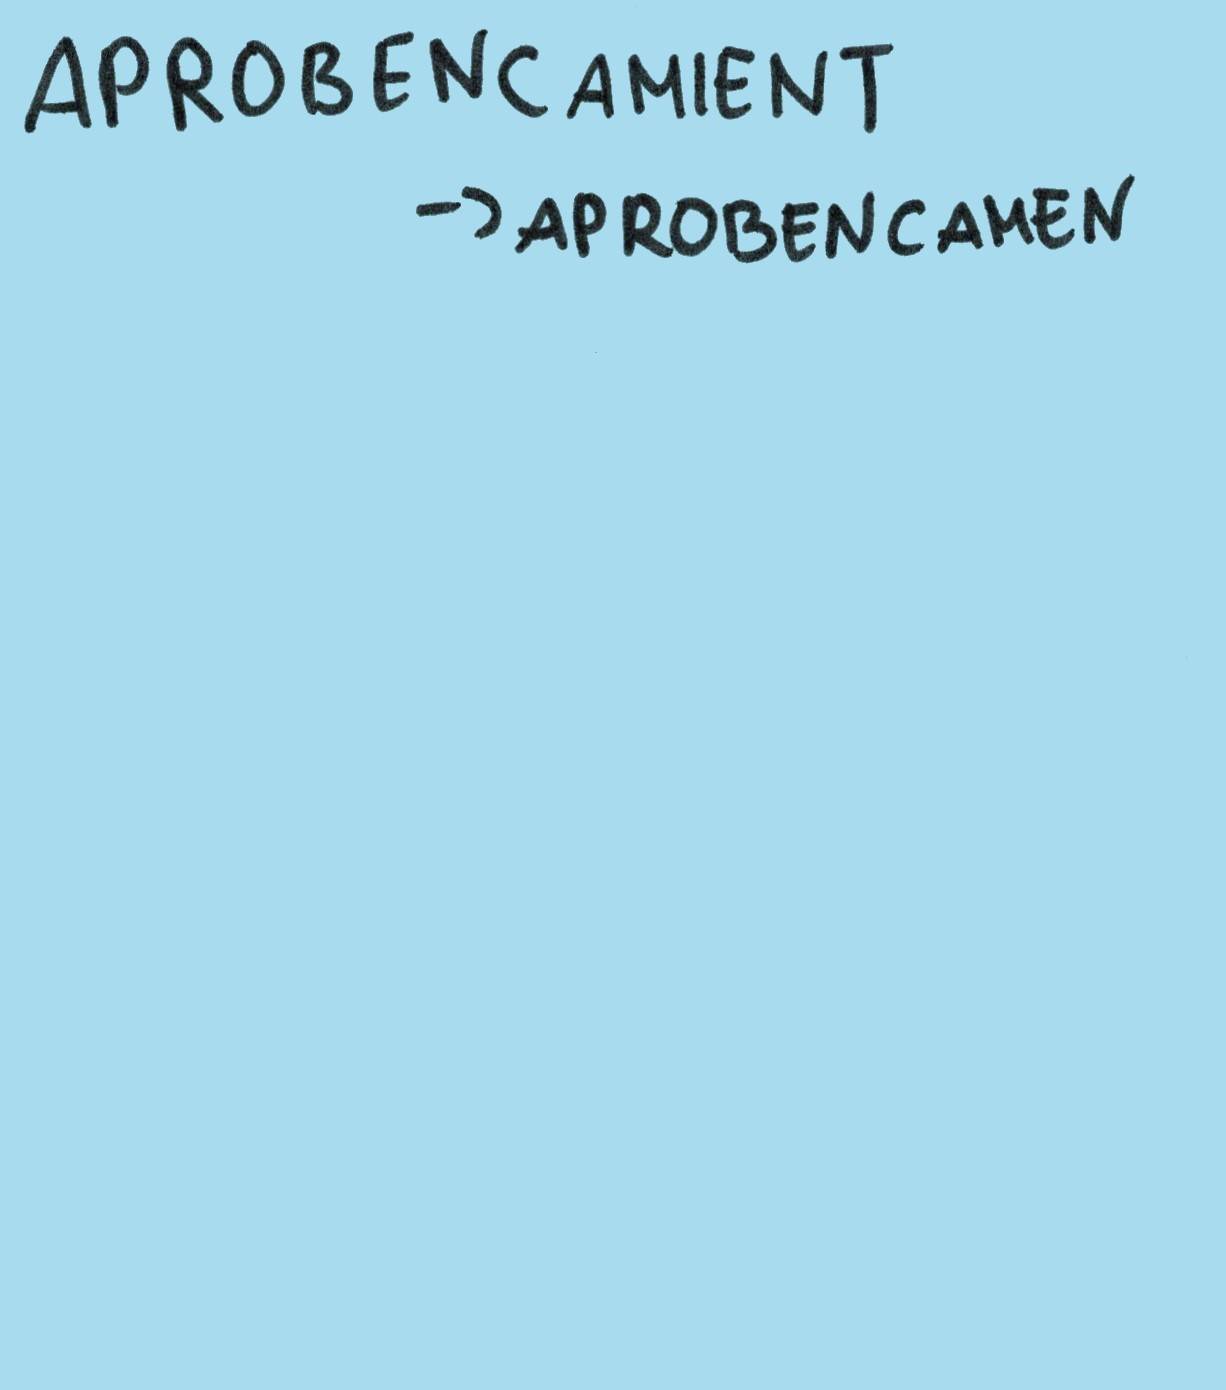 APROBENCAMIENT
→ APROBENCAMEN